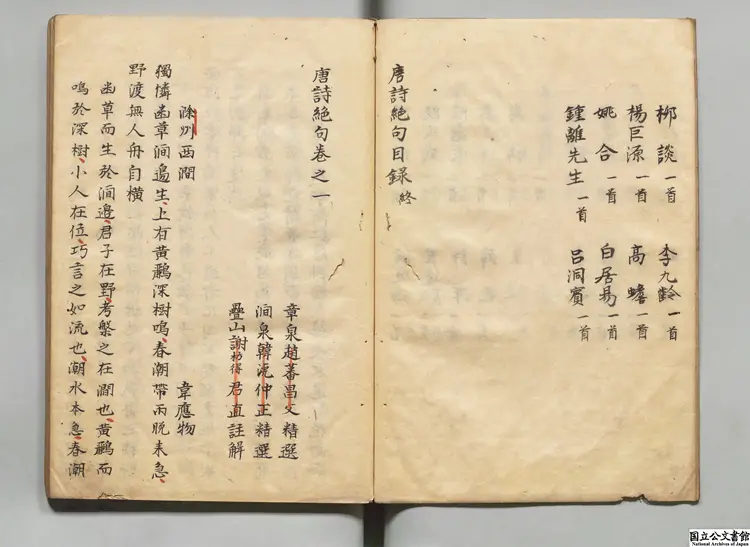 柳談 一首 李九齡 一首
楊巨源 一首 高蟾 一首
姚合 一首 白居易 一首
鍾離先生 一首 呂洞賓 一首
唐詩絕句目録 終
唐詩絕句卷之一
章泉趙蕃昌父精選
澗泉韓淲仲正精選
疊山謝枋得君直註解
滁州西澗 韋應物
獨憐幽草澗邊生上有黃鸝深樹鳴春潮帶雨晚来急
野渡無人舟自橫
幽草而生於澗邊君子在野考槃之在澗也黃鸝而
鳴於深樹小人在位巧言之如流也潮水本急春潮
国立公文書館
National Archives of Japan